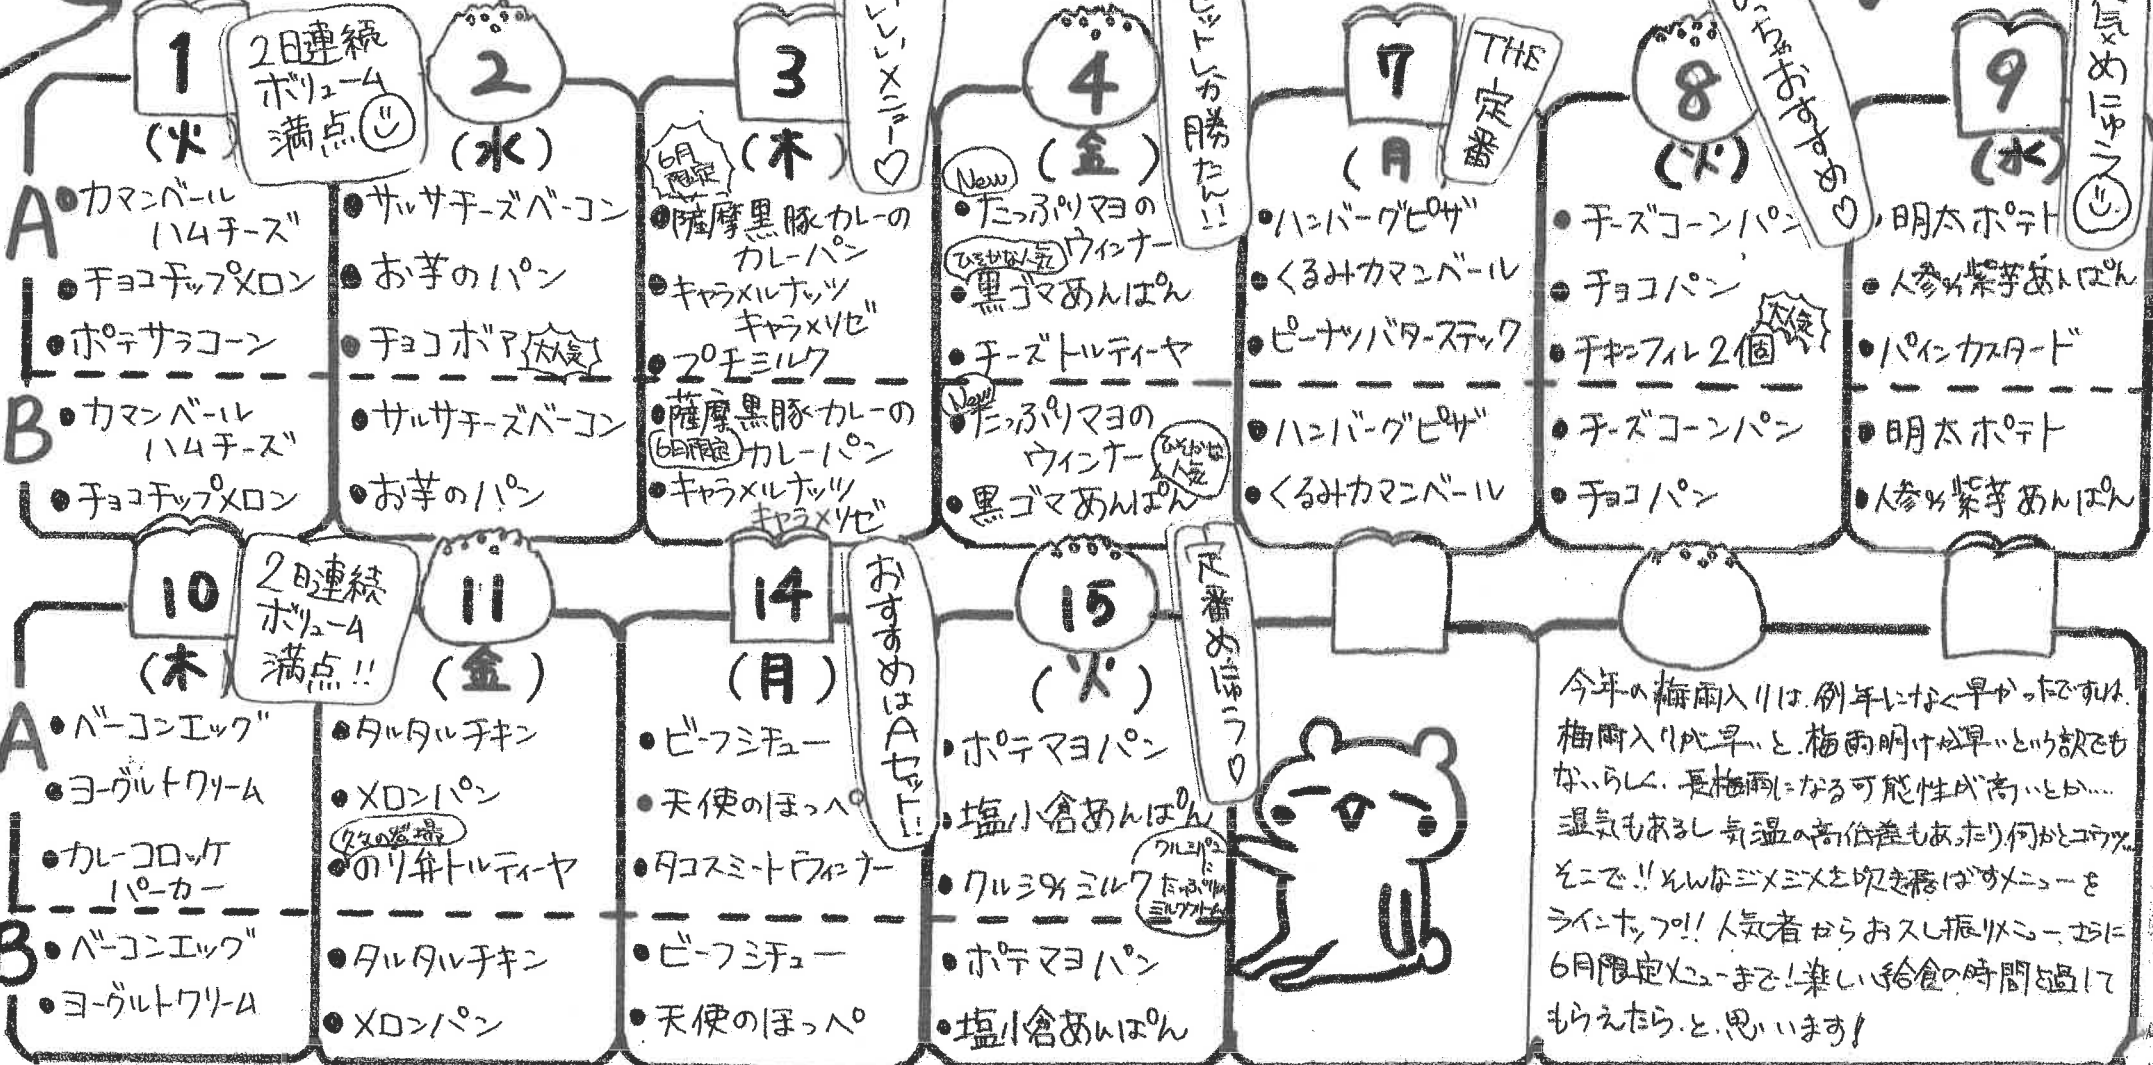 1
(火)
2日連続
ボリューム
満点
A
カマンベール
ハムチーズ
チョコチップメロン
ポテサラコーン
B
カマンベール
ハムチーズ
チョコチップメロン
2
(水)
サルサチーズベーコン
お芋のパン
チョコボア
大人気
サルサチーズベーコン
お芋のパン
3
(木)
しいメニュー♡
6月
限定
薩摩黒豚カレーの
カレーパン
キャラメルナッツ
キャラメリゼ
プチミルク
薩摩黒豚カレーの
6月限定
カレーパン
キャラメルナッツ
キャラメリゼ
4
(金)
ットしか勝たん!!
New
たっぷりマヨの
ウィンナー
ひそかな人気
黒ゴマあんぱん
チーズトルティーヤ
New
たっぷりマヨの
ウィンナー
ひそかな
人気
黒ゴマあんぱん
7
(月)
THE
定番
ハンバーグピザ
くるみカマンベール
ピーナツバタースティック
ハンバーグピザ
くるみカマンベール
8
(火)
っちゃおすすめ♡
チーズコーンパン
チョコパン
チキンフィレ2個
大人気
チーズコーンパン
チョコパン
9
(水)
気めにゅう
明太ポテト
人参de紫芋あんぱん
パインカスタード
明太ポテト
人参de紫芋あんぱん
10
(木)
2日連続
ボリューム
満点!!
A
ベーコンエッグ
ヨーグルトクリーム
カレーコロッケ
バーガー
B
ベーコンエッグ
ヨーグルトクリーム
11
(金)
タルタルチキン
メロンパン
久々の登場
のり弁トルティーヤ
タルタルチキン
メロンパン
14
(月)
おすすめはAセット!!
ビーフシチュー
天使のほっぺ
タコスミートウィンナー
ビーフシチュー
天使のほっぺ
15
(火)
定番めにゅう♡
ポテマヨパン
塩小倉あんぱん
クルミdeミルク
クルミパン
に
たっぷりの
ミルククリーム
ポテマヨパン
塩小倉あんぱん
今年の梅雨入りは、例年になく早かったですね。
梅雨入りが早いと、梅雨明けが早いという訳でも
ないらしく、長梅雨になる可能性が高いとか……
湿気もあるし気温の高低差もあったり何かとコウツ…
そこで!!そんなジメジメを吹き飛ばすメニューを
ラインナップ!!人気者からお久し振りメニュー、さらに
6月限定メニューまで!楽しい給食の時間を過して
もらえたら、と思います!